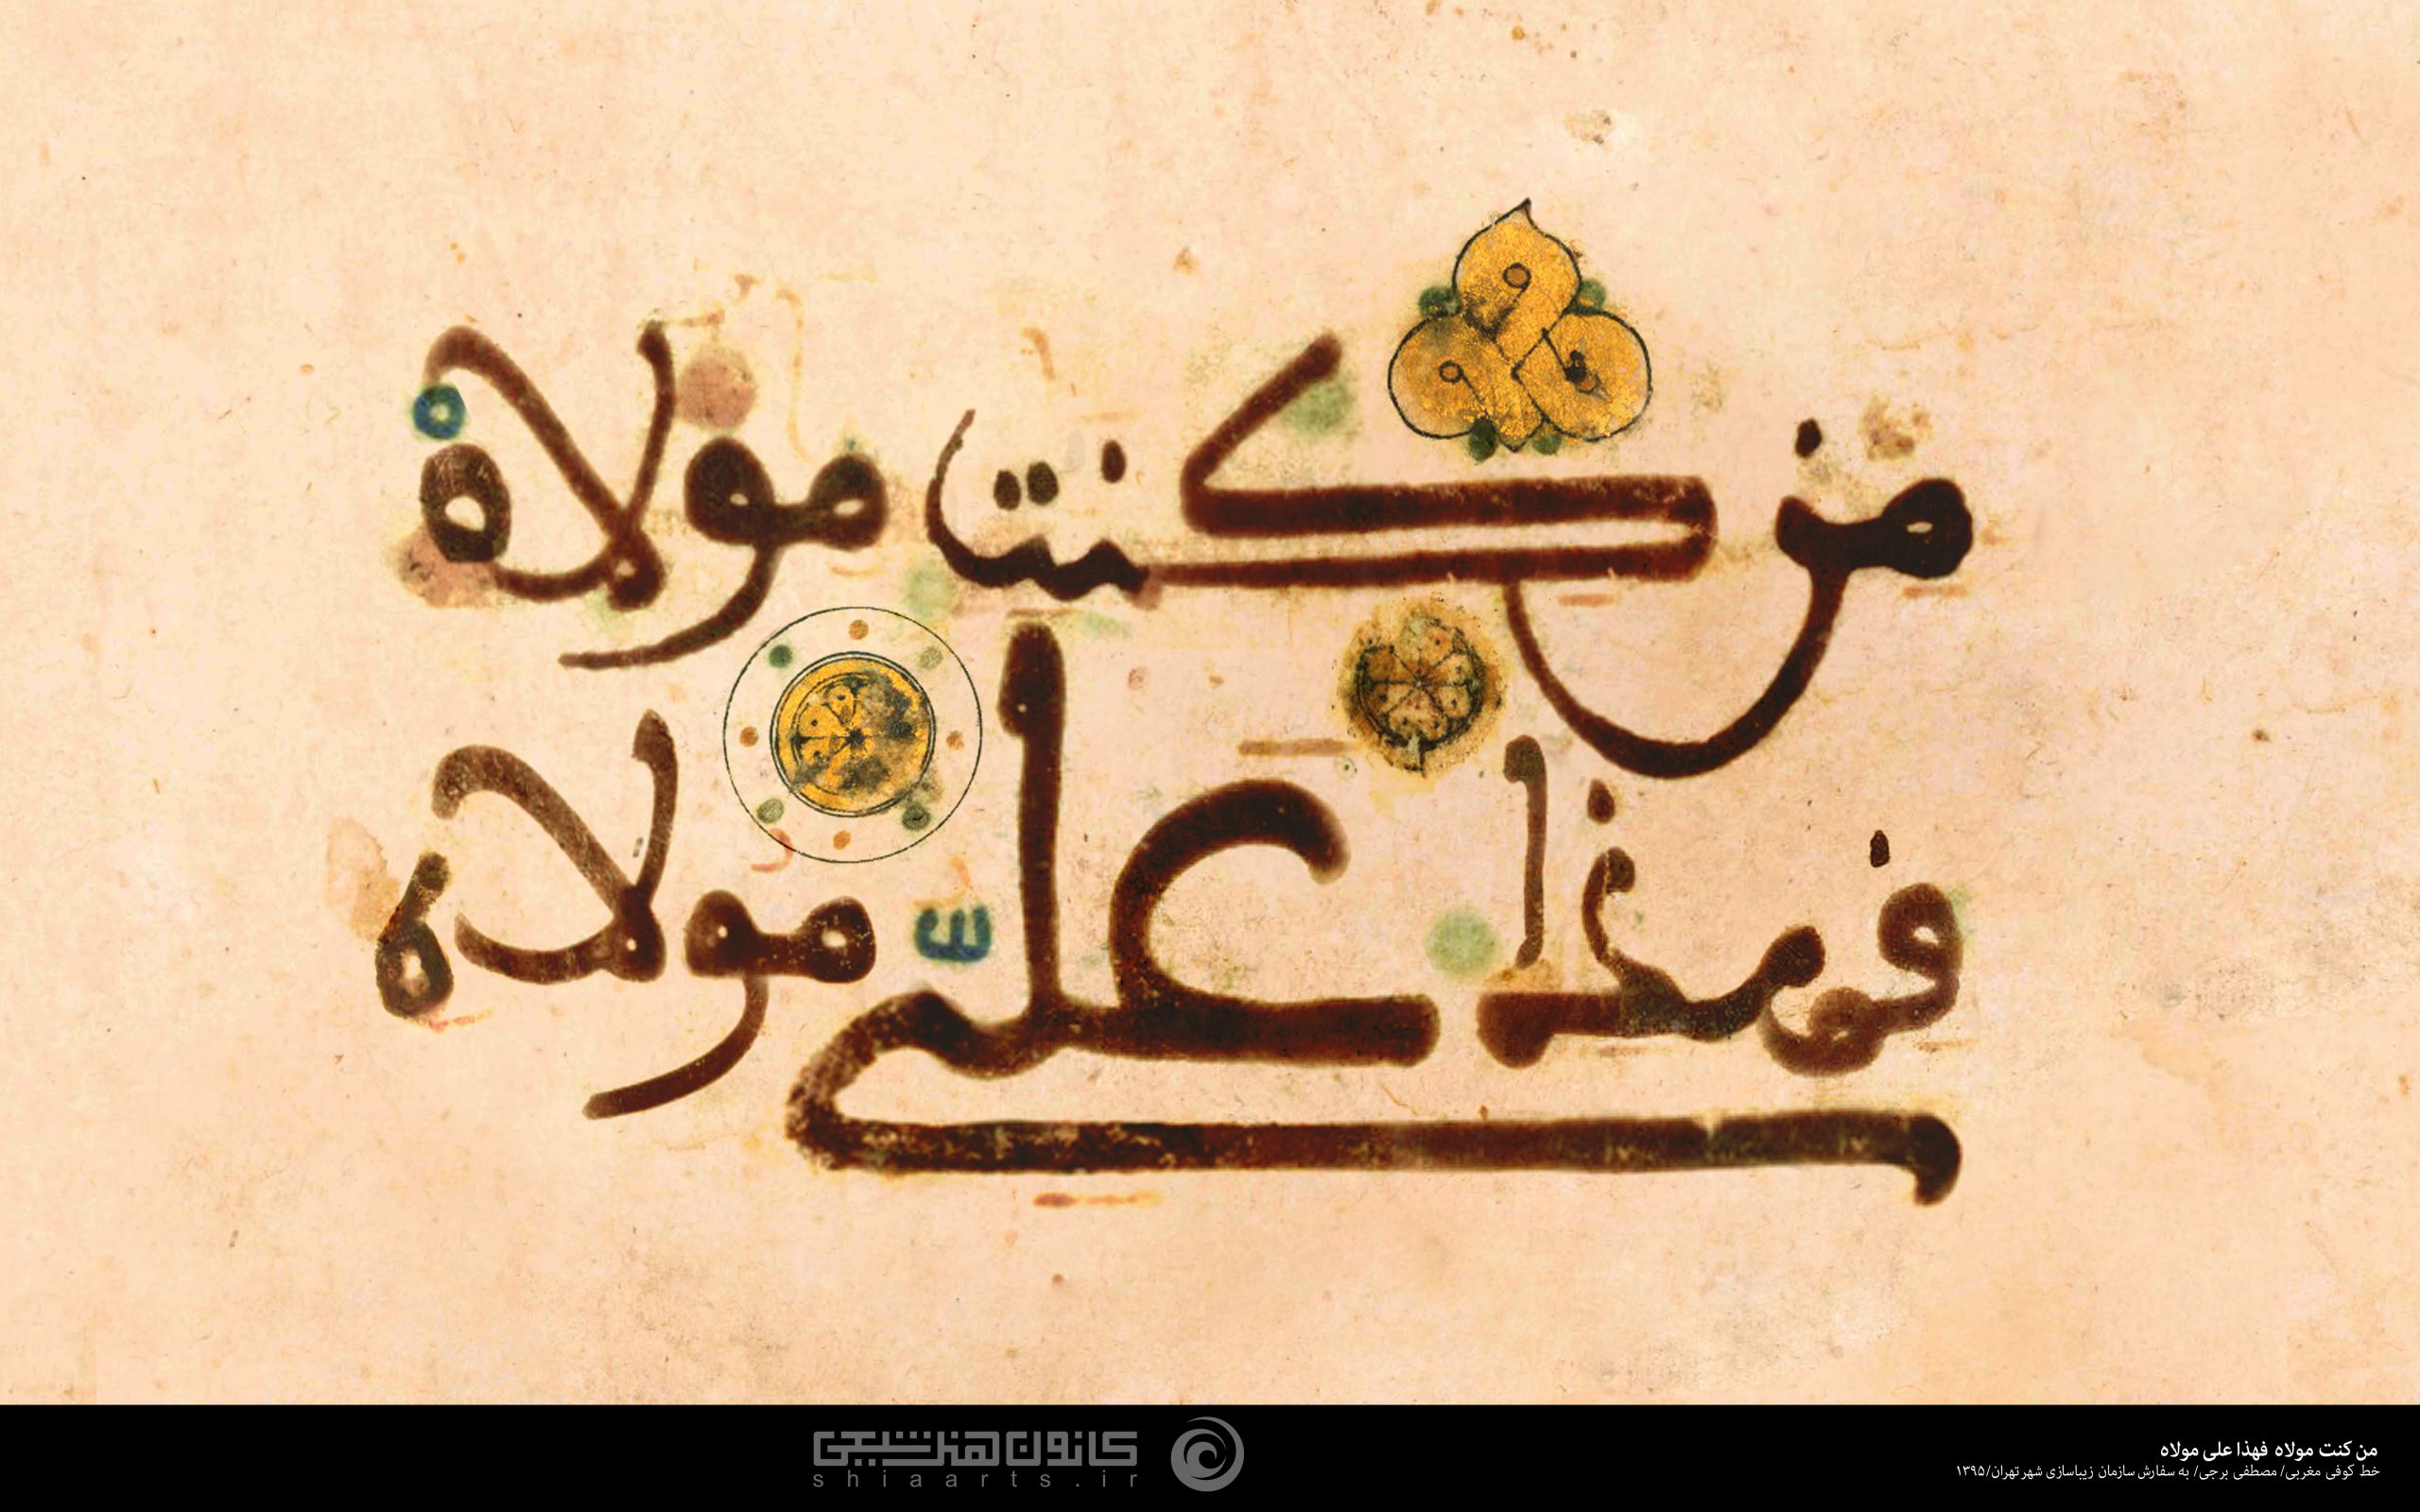 من كنت مولاه
فهذا علىّ مولاه
کانون هنر شیعی
shiaarts.ir
من کنت مولاه فهذا علی مولاه
خط کوفی مغربی/ مصطفی برجی/ به سفارش سازمان زیباسازی شهر تهران/۱۳۹۵